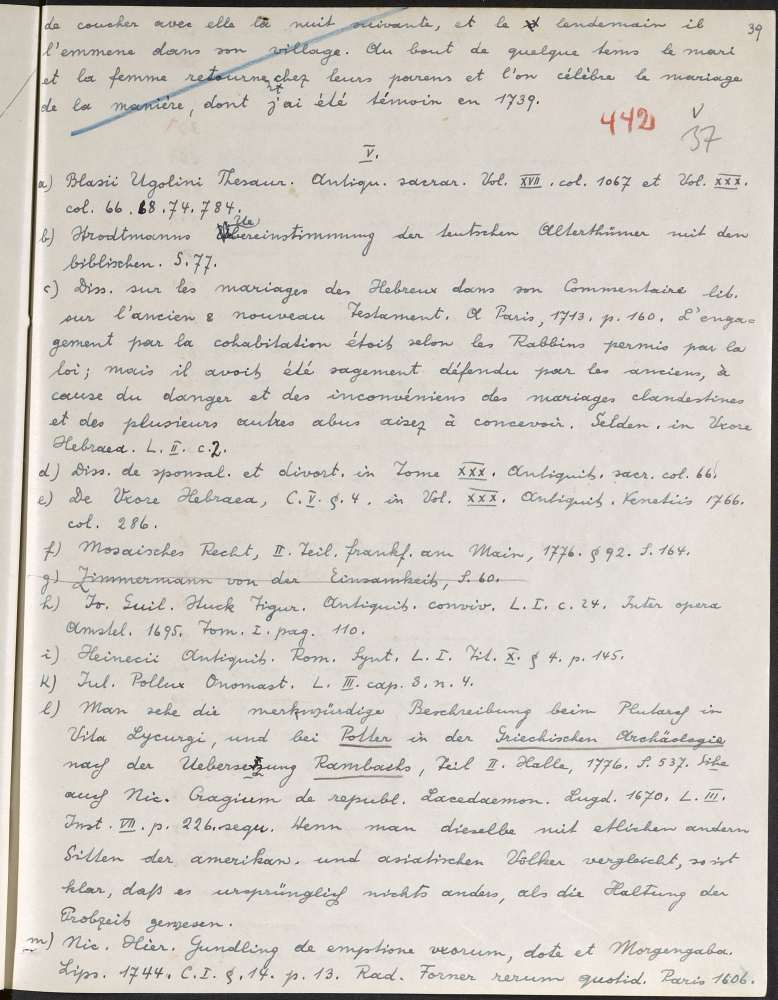 39
de coucher avec elle la nuit suivante, et le lendemain il
l'emmene dans son village. Au bout de quelque tems le mari
et la femme retourne, chez leurs parens et l'on célèbre le mariage
nt
de la manière, dont j'ai été témoin en 1739.
442
V
37
V.
a) Blasii Ugolini Thesaur. Antiqu. sacrar. Vol. XVII. col. 1067 et Vol. XXX.
col. 66. 68. 74. 784.
b) Strodtmanns Uebereinstimmung der teutschen Alterthümer mit den
biblischen. S. 77.
c) Diss. sur les mariages des Hebreux dans son Commentaire lib.
sur l'ancien & nouveau Testament. A Paris, 1713. p. 160. L'enga=
gement par la cohabitation étoit selon les Rabbins permis par la
loi; mais il avoit été sagement défendu par les anciens, à
cause du danger et des inconvéniens des mariages clandestines
et des plusieurs autres abus aisez à concevoir. Selden. in Uxore
Hebraea. L. II. c. 2.
d) Diss. de sponsal. et divort. in Tome XXX. Antiquit. sacr. col. 66.
e) De Uxore Hebraea, C. V. §. 4. in Vol. XXX. Antiquit. Venetiis 1766.
col. 286.
f) Mosaisches Recht, II. Teil. frankf. am Main, 1776. § 92. S. 164.
g) Zimmermann von der Einsamkeit, S. 60.
h) Jo. Guil. Stuck Figur. Antiquit. conviv. L. I. c. 24. Inter opera
Amstel. 1695. Tom. I. pag. 110.
i) Heinecii Antiquit. Rom. Synt. L. I. Tit. X. § 4. p. 145.
k) Jul. Pollux Onomast. L. III. cap. 3. n. 4.
l) Man sehe die merkwürdige Beschreibung beim Plutarch in
Vita Lycurgi, und bei Potter in der Griechischen Archäologie
nach der Uebersetzung Rambachs, Teil II. Halle, 1776. S. 537. Sihe
auch Nic. Cragium de republ. Lacedaemon. Lugd. 1670. L. III.
Inst. VII. p. 226. sequ. Wenn man dieselbe mit etlichen andern
Sitten der amerikan. und asiatischen Völker vergleicht, so ist
klar, daß es ursprünglich nichts anders, als die Haltung der
Probzeit gewesen.
m) Nic. Hier. Gundling de emptione uxorum, dote et Morgengaba.
Lips. 1744. C. I. §. 14. p. 13. Rad. Forner rerum quotid. Paris 1606.